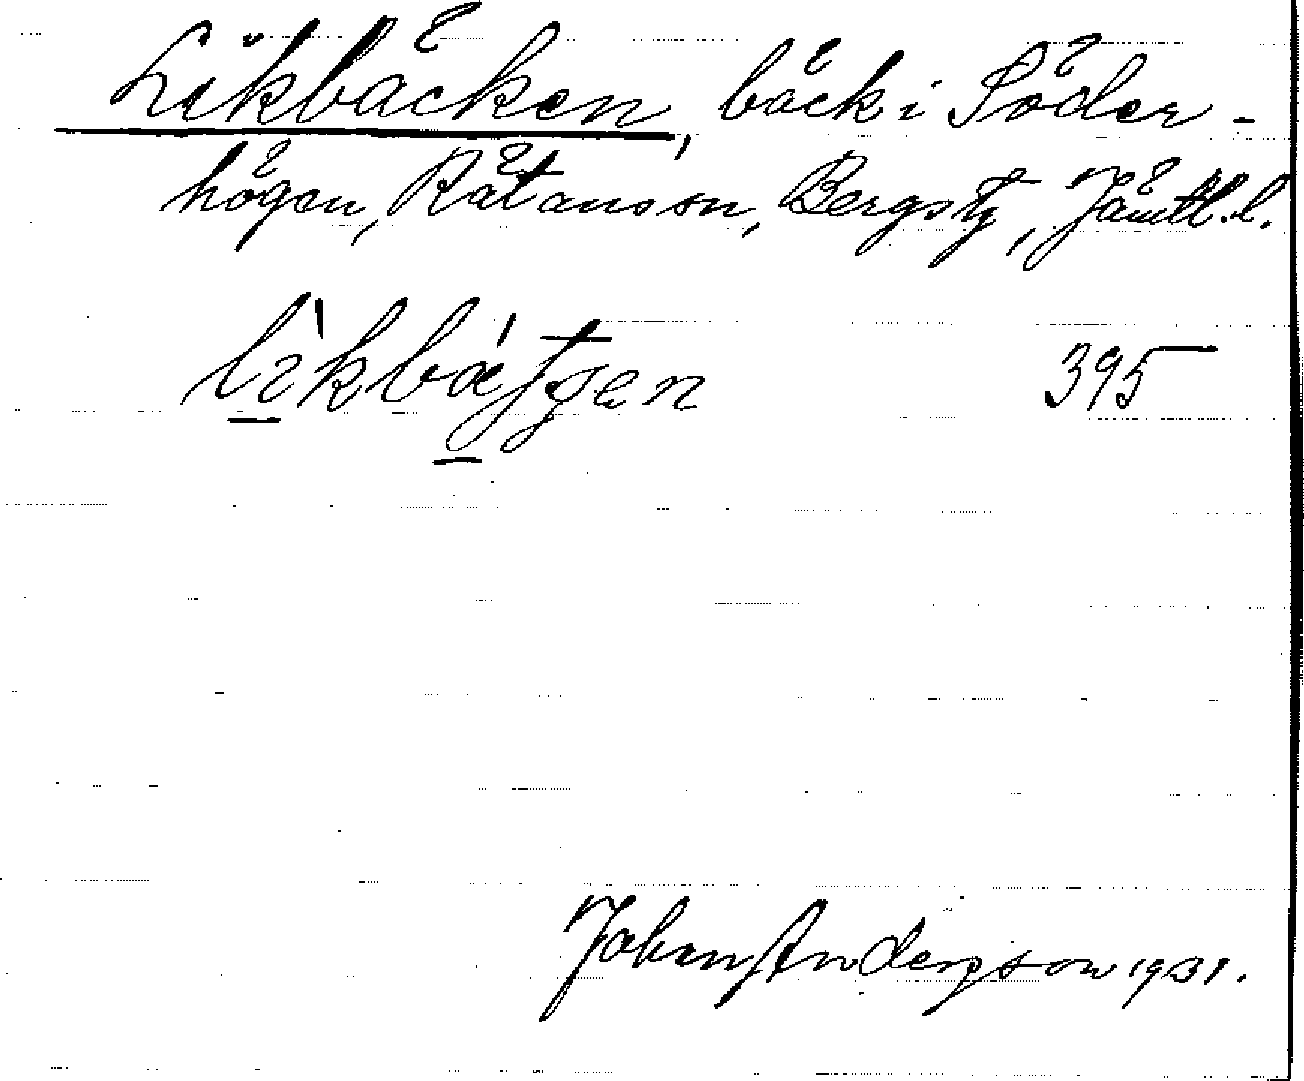 Likbäcken, bäck i Söder-
högen, Rätans sn, Bergs tg, Jämtl. l.
395
Johan Anderson 1931.